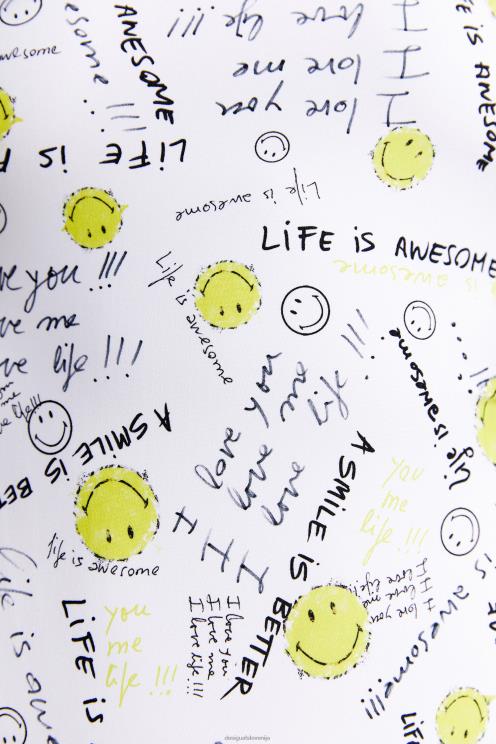 I love life !!!
I love me
I love you
esome !!!
AWESOME
awesome
FE is AWESOME
LiFE is A
Life is awesome
LiFE is AWESOME
is awesome
ve you !!!
ve me
ve life !!!
Life is awesome
Life is awesome
I love you
I love me
I love life !!!
A SMiLE iS BET
A SMiLE iS BETTER
you
me
life !!!
life is awesome
I love you
I love me
I love life !!!
LiFE is
you
me
life !!!
I love you
I love me
I love life !!!
is awesome!!!
life is awe
LiF
desigualslovenija